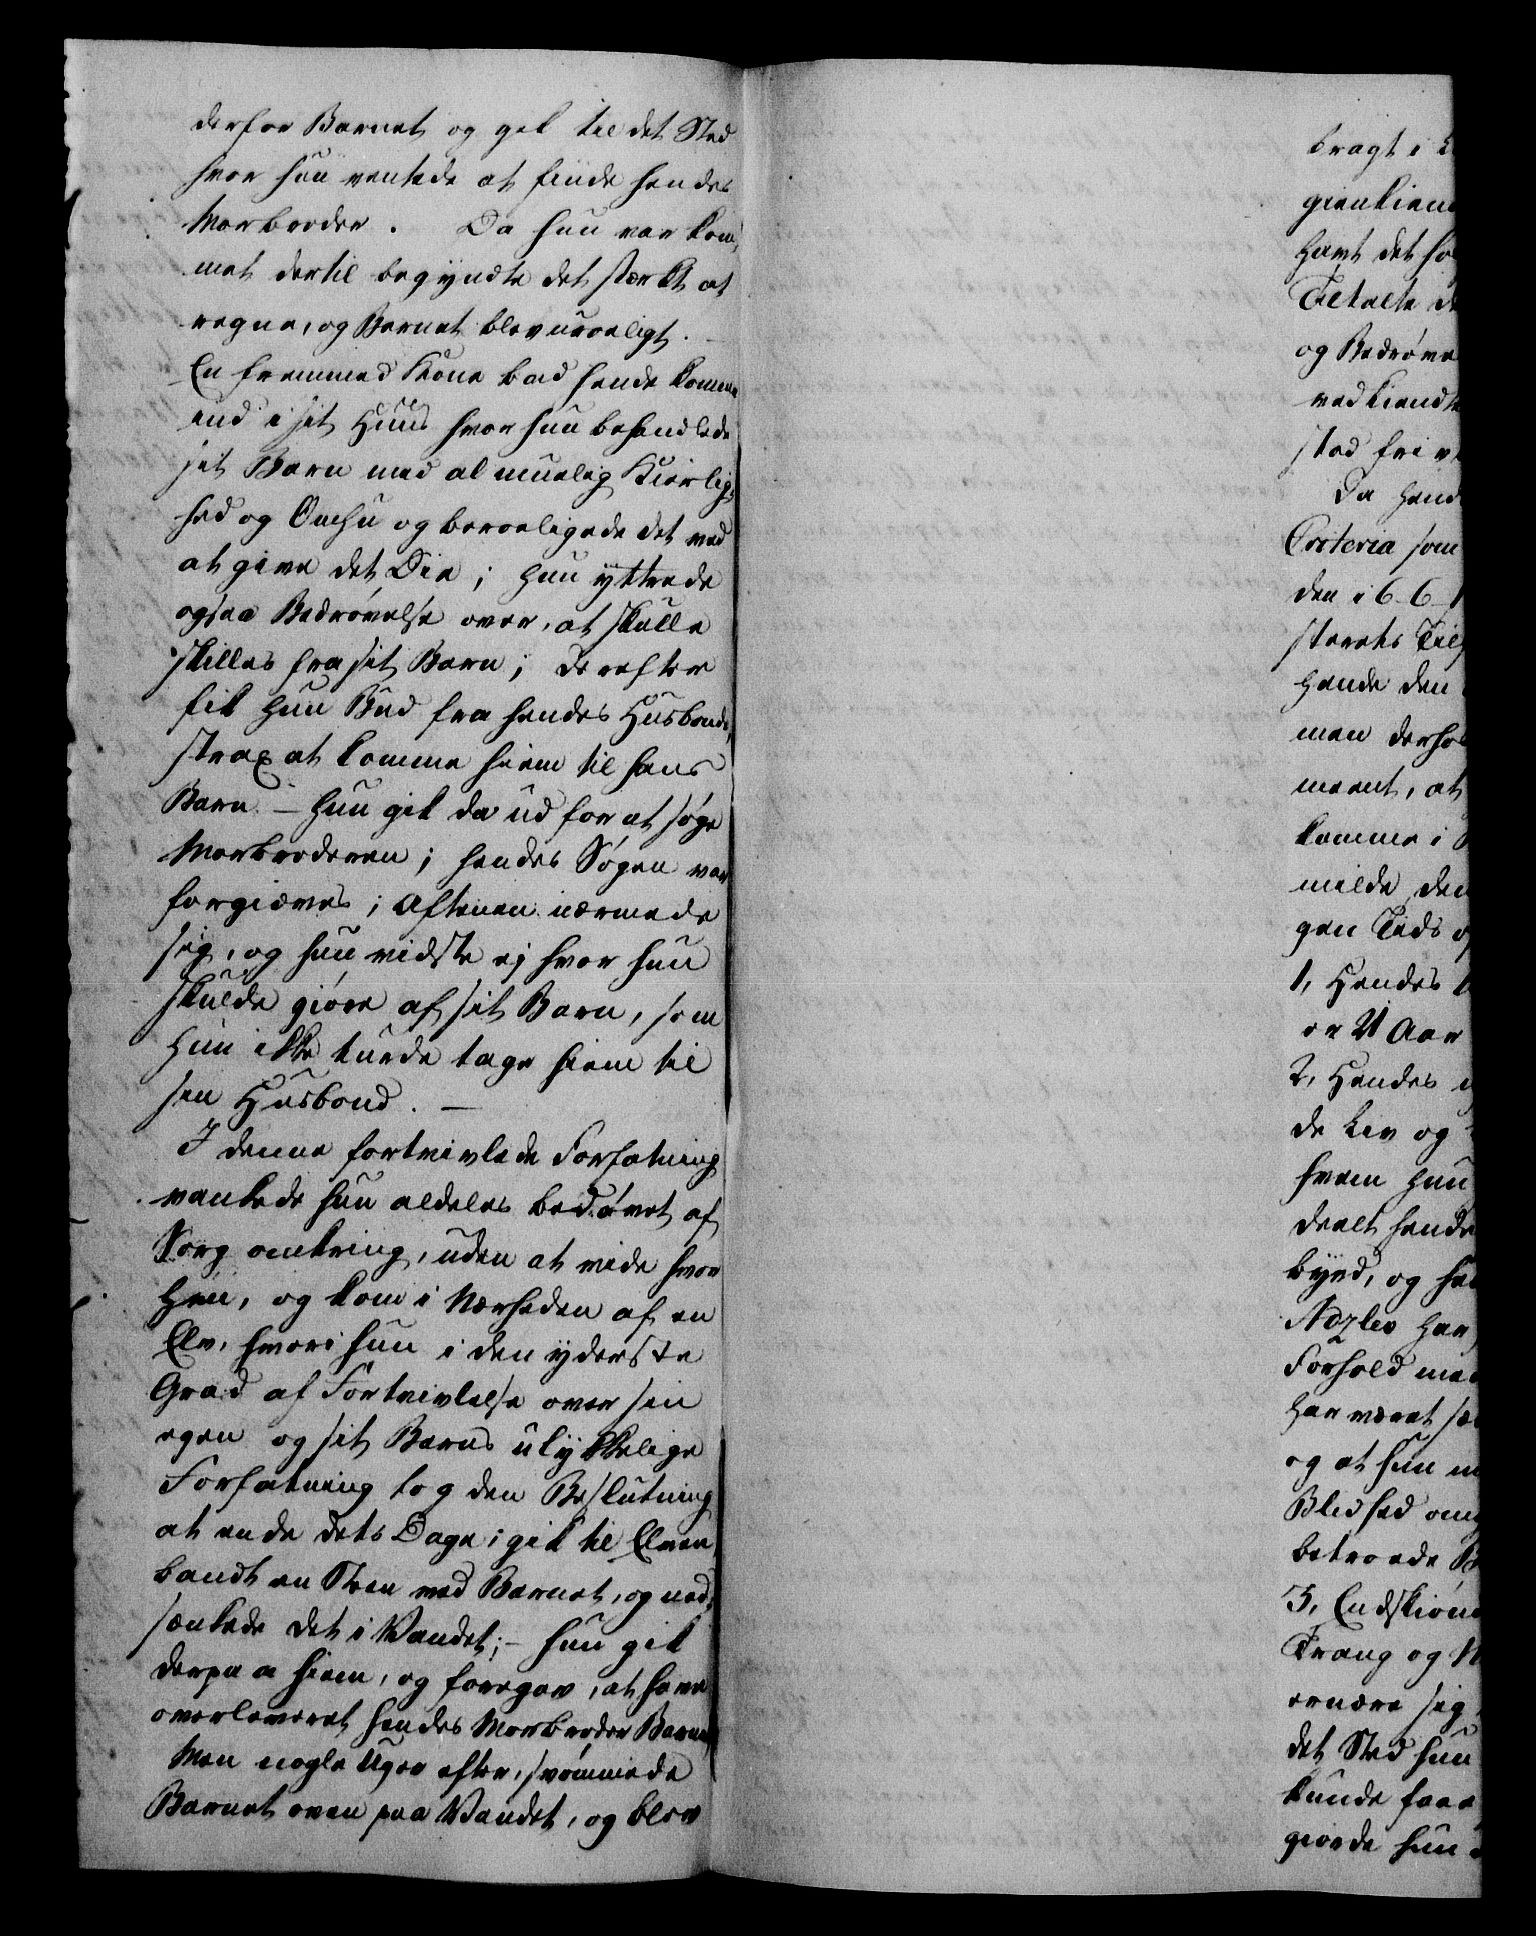 derfor Barnet og gik til det Sted
hvor hun ventede at finde hendes
Morbroder. Da hun var kom-
met dertil begyndte det stærkt at
regne, og Barnet blev uroeligt. –
En fremmed Kone bad hende komme
ind i sit Huus hvor hun behandlede
sit Barn med al muelig Kierlig-
hed og Omhu og beroeligede det ved
at give det Die; hun yttrede
ogsaa Bedrøvelse over, at skulle
skilles fra sit Barn; derefter
fik hun Bud fra hendes Husbonde,
strax at komme hiem til hans
Barn. – hun gik da ud for at søge
Morbroderen; hendes Søgen var
forgiæves; Aftenen nærmede
sig, og hun vidste ej hvor hun
skulde giøre af sit Barn, som
hun ikke turde tage hiem til
sin Husbond. –
I denne fortvivlede Forfatning
vankede hun aldeles bedøvet af
Sorg omkring, uden at vide hvor
hen, og kom i Nærheden af en
Elv, hvori hun i den yderste
Grad af Fortvivlelse over sin
egen og sit Barns ulykkelige
Forfatning tog den Beslutning
at ende dets Dage; gik til Elven,
bandt en Steen ved Barnet, og ned-
sænkede det i Vandet; – hun gik
derpaa hiem, og foregav, at have
overleveret hendes Morbroder Barnet,
Men nogle Uger efter, svømmede
Barnet oven paa Vandet, og blev
bragt i
gienkien
havt det
Tiltalte
og Bedrøve
vedkiendte
sted fri
Da hend
Criteria som
den i 6-6-1
sterets Til
hende den
men derho
meent, at
komme i
milde, den
gen Tids
1, Hendes
er 21 Aar
2, Hendes
de Liv og
hvem hun
deelt hende
byrd, og
har
Forhold med
har været
og at hun
Blidhed om
betroede
3, Endskiøn
Trang og
ernære sig
det Sted hun
kunde faae
giorde hun